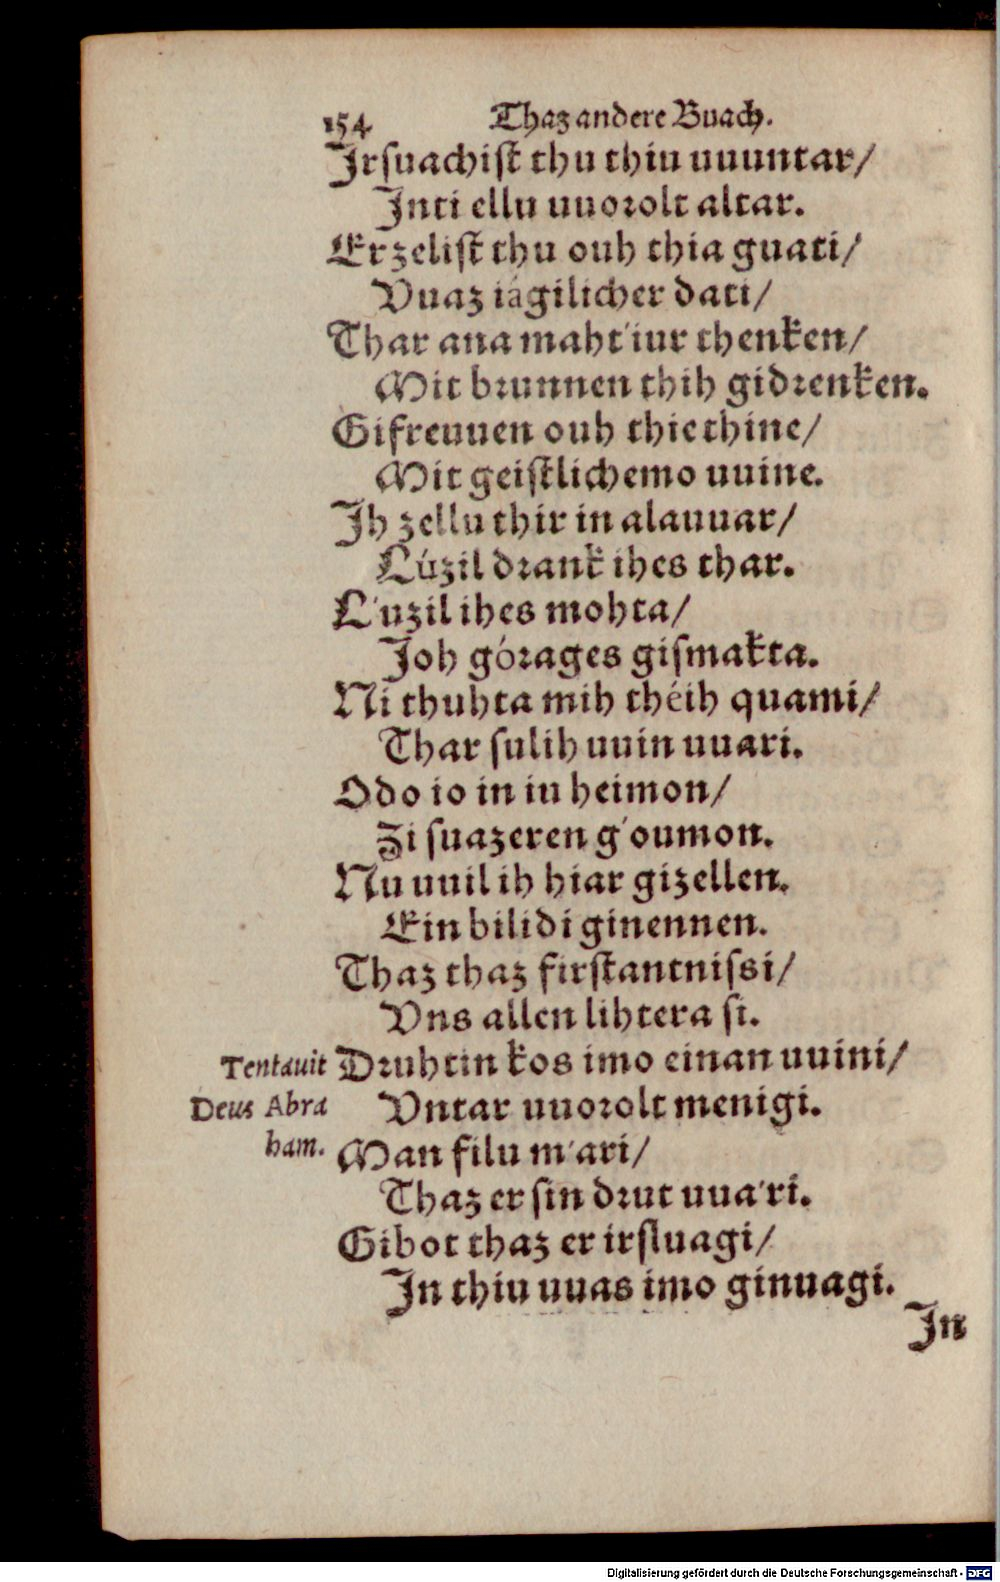 154 Thaz andere Buach.
Irsuachist thu thiu uuuntar/
Inti ellu uuorolt altar.
Erzelist thu ouh thia guati/
Vuaz iágilicher dati/
Thar ana maht'iur thenken/
Mit brunnen thih gidrenken.
Gifreuuen ouh thie thine/
Mit geistlichemo uuine.
Ih zellu thir in alauuar/
Lúzil drank ihes thar.
L'uzil ihes mohta/
Ioh górages gismakta.
Ni thuhta mih théih quami/
Thar sulih uuin uuari.
Odo io in iu heimon/
Zi suazeren g'oumon.
Nu uuil ih hiar gizellen.
Ein bilidi ginennen.
Thaz thaz firstantnissi/
Vns allen lihtera si.
Tentauit Druhtin kos imo einan uuini/
Deus Abra Vntar uuorolt menigi.
ham. Man filu m'ari/
Thaz er sin drut uua'ri.
Gibot thaz er irsluagi/
In thiu uuas imo ginuagi.
In
Digitalisierung gefördert durch die Deutsche Forschungsgemeinschaft - DFG